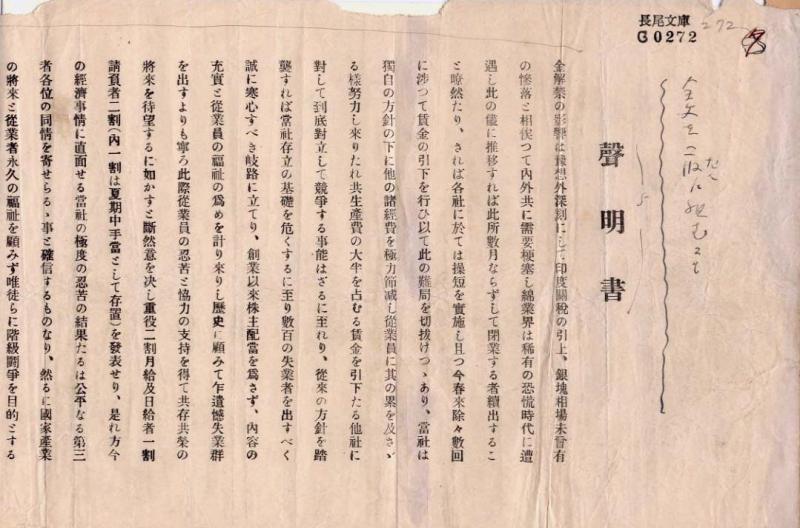 長尾文庫
G0272
272
聲明書
金解禁の影響は豫想外深刻にして印度關税の引上、銀塊相場未曾有
の慘落と相俟つて内外共に需要梗塞し綿業界は稀有の恐慌時代に遭
遇し此の儘に推移すれば此所數月ならずして閉業する者續出するこ
と瞭然たり、されば各社に於ては操短を實施し且つ今春來除々數回
に渉つて賃金の引下を行ひ以て此の難局を切拔けつゝあり、當社は
獨自の方針の下に他の諸經費を極力節减し從業員に其の累を及さゞ
る樣努力し來りたれ共生產費の大半を占むる賃金を引下たる他社に
對して到底對立して競爭する事能はざるに至れり、從來の方針を踏
襲すれば當社存立の基礎を危くするに至り數百の失業者を出すべく
誠に寒心すべき岐路に立てり、創業以來株主配當を爲さず、内容の
充實と從業員の福祉の爲めを計り來りし歷史に顧みて乍遺憾失業群
を出すよりも寧ろ此際從業員の忍苦と協力の支持を得て共存共榮の
將來を待望するに如かずと斷然意を决し重役二割月給及日給者一割
請負者二割(内一割は夏期中手當として存置)を發表せり、是れ方今
の經濟事情に直面せる當社の極度の忍苦の結果たるは公平なる第三
者各位の同情を寄せらるゝ事と確信するものなり、然るに國家產業
の將來と從業者永久の福祉を顧みず唯徒らに階級鬪爭を目的とする